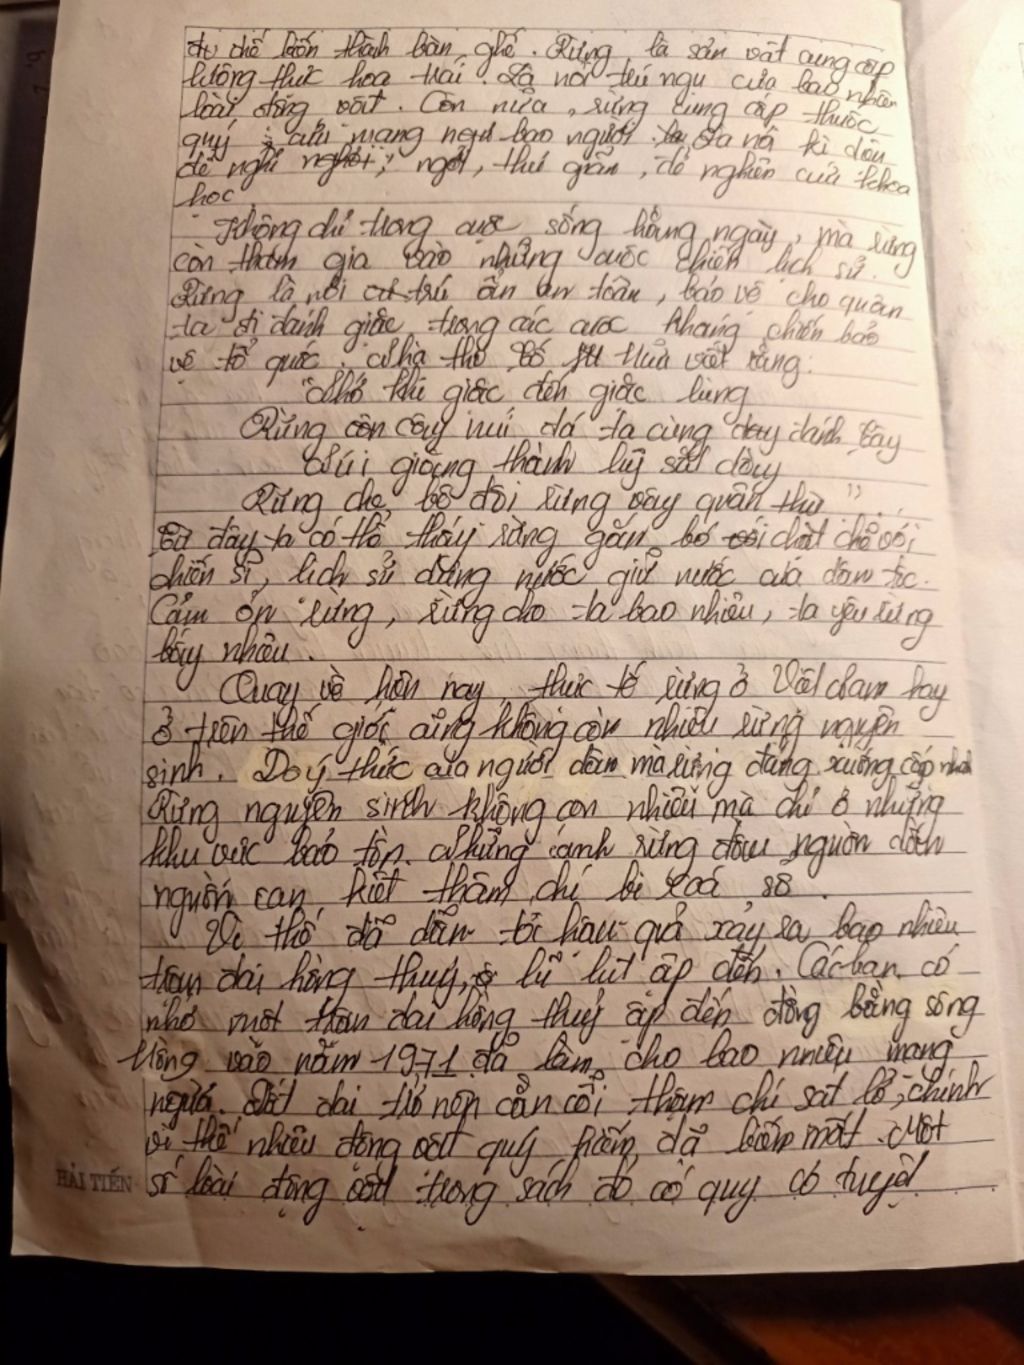 chế biến thành bàn, ghế. Rừng là sản vật cung cấp
lương thực hoa trái. Là nơi trú ngụ của bao nhiên
loài động vật. Còn nữa, rừng cung cấp thuốc
quý cứu mạng người bao người. Là nơi kì diệu
để nghỉ ngơi, thư giãn, để nghiên cứu khoa
học
Không chỉ trong cuộc sống hằng ngày, mà rừng
còn tham gia vào những cuộc chiến lịch sử.
Rừng là nơi trú ẩn an toàn, bảo vệ cho quân
ta đi đánh giặc trong các cuộc kháng chiến bảo
vệ tổ quốc. Nhà thơ Tố Hữu viết rằng:
"Nhớ khi giặc đến giặc lùng
Rừng cây núi đá ta cùng đánh Tây
Núi giăng thành luỹ sắt dày
Rừng che bộ đội rừng vây quân thù"...
Từ đây ta có thể thấy rằng gắn bó chặt chẽ với
chiến sĩ, lịch sử dựng nước giữ nước của dân tộc.
Cảm ơn rừng, rừng cho ta bao nhiêu, ta yêu rừng
bấy nhiêu.
Quay về hôm nay, thực tế rừng ở Việt Nam hay
ở trên thế giới cũng không còn nhiều rừng nguyên
sinh. Do ý thức của người dân mà rừng đang xuống cấp
Rừng nguyên sinh không còn nhiều mà chỉ ở những
khu vực bảo tồn. Những cánh rừng đầu nguồn dần
nguồn cạn kiệt thậm chí bị xoá sổ.
Vì thế đã dẫn tới hậu quả xảy ra bao nhiêu
trận đại hồng thuỷ, lũ lụt ập đến. Các bạn có
nhớ một trận đại hồng thuỷ ập đến đồng bằng sông
Hồng vào năm 1971 đã làm cho bao nhiêu mạng
người. Đất đai trở nên cằn cỗi thậm chí sạt lở, chính
vì thế nhiều động vật quý hiếm đã biến mất. Một
số loài động vật trong sách đỏ có quy cơ tuyệt
HẢI TIẾN